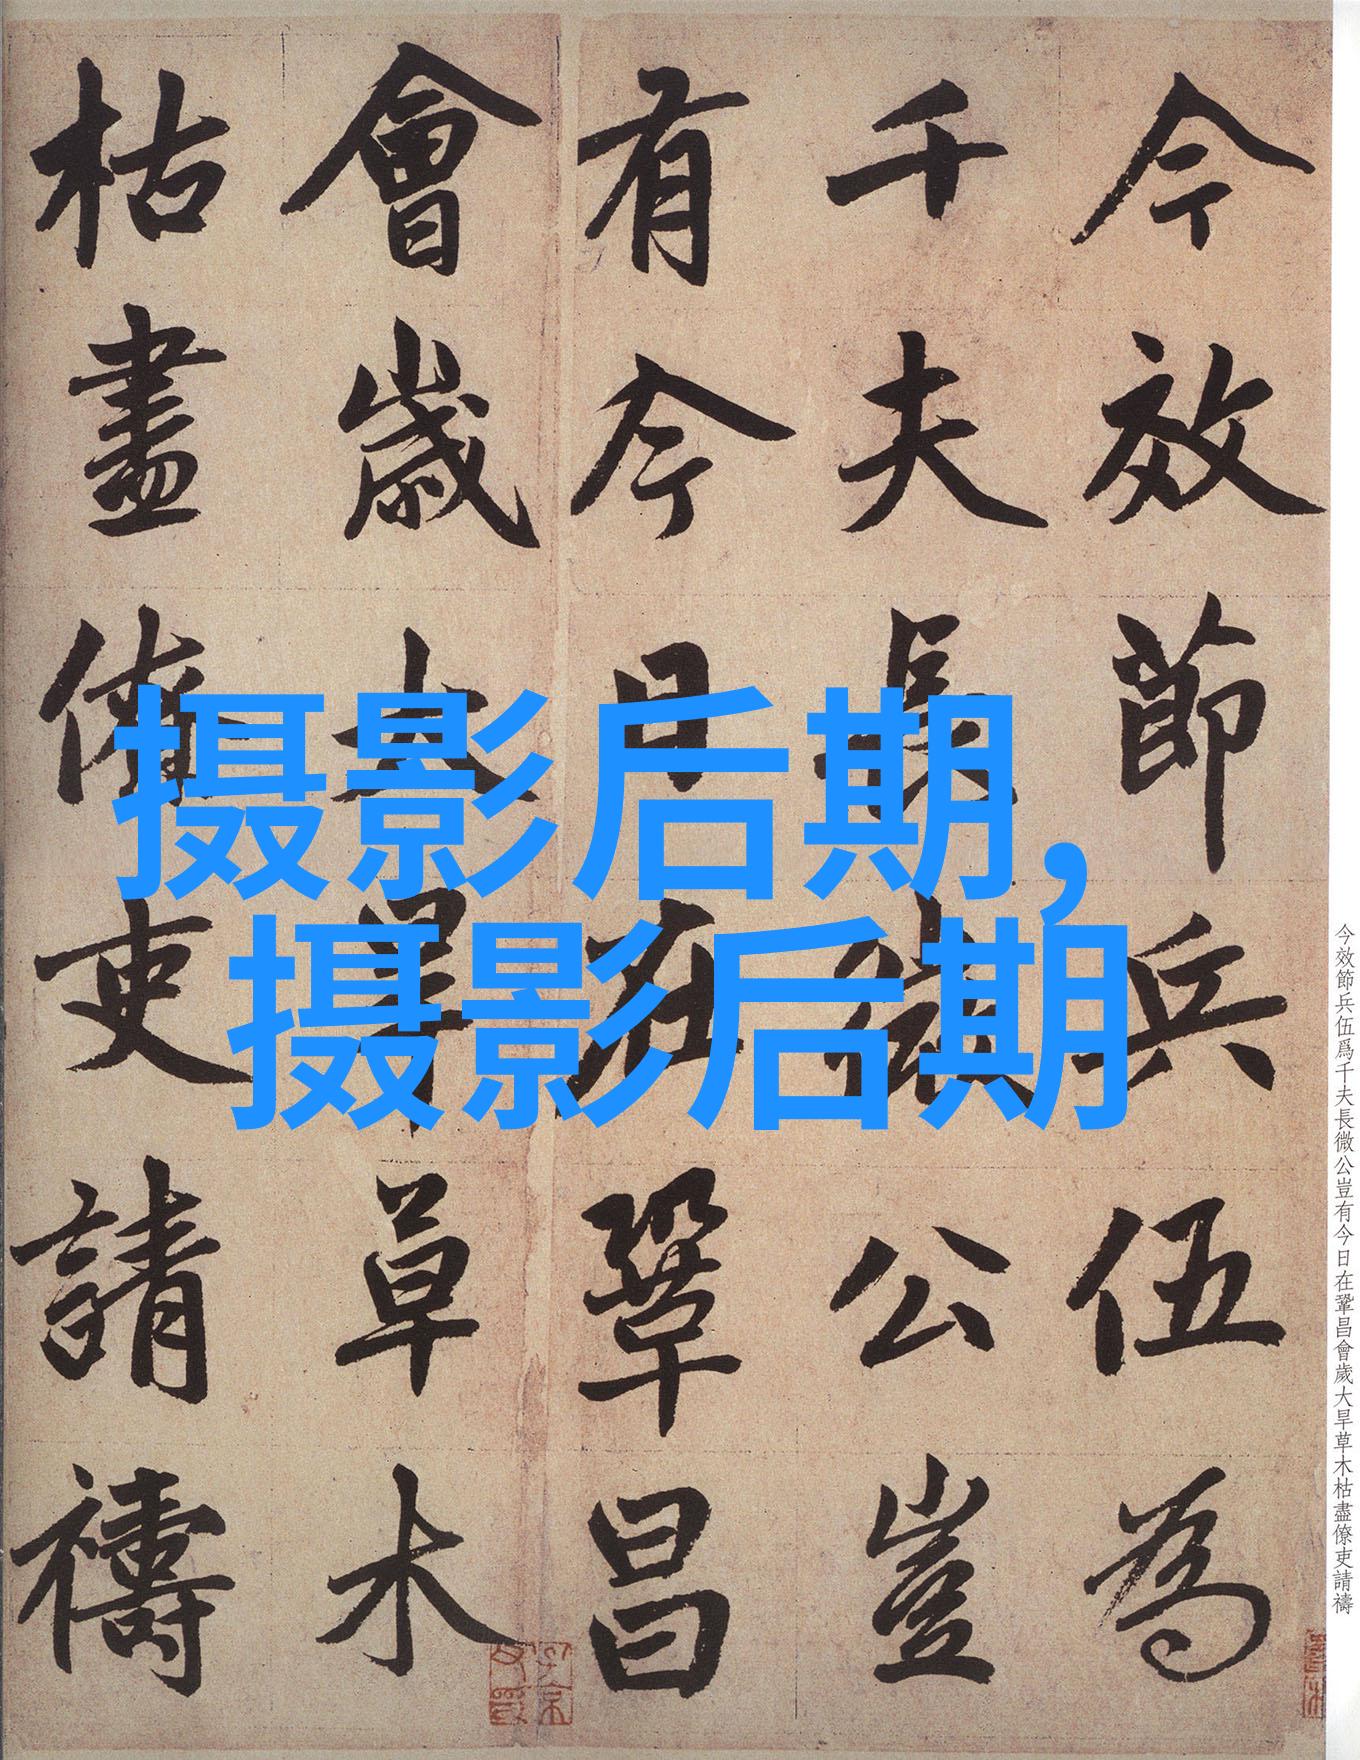 今效節兵伍為
千夫長微公豈
有今日在鞏昌
會歲大旱草木
枯盡僚吏請禱
摄影后期，
摄影后期
今效節兵伍爲千夫長微公豈有今日在鞏昌會歲大旱草木枯盡僚吏請禱